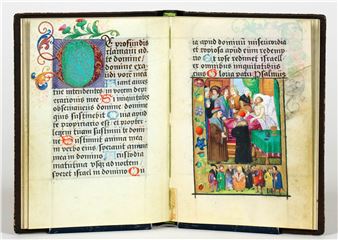 De profundis
clamavi ad
te domine/
domine exau
di vocem mea
Fiant aures tue
intendentes/ in vocem depre
cationis mee Si iniquitates
observaveris domine: domine
quis sustinebit Quia apud
te propiciatio est: et propter
legem tuam sustinui te domi
ne Sustinuit anima mea
in verbo eius: speravit anima
mea in domino A custodia
matutina usque ad noctem:
speret israel in domino Qui
ia apud dominum misericordia
et copiosa apud eum redemp
tio Et ipse redimet israel:
ex omnibus iniquitatibus
eius Gloria patri Psalmus